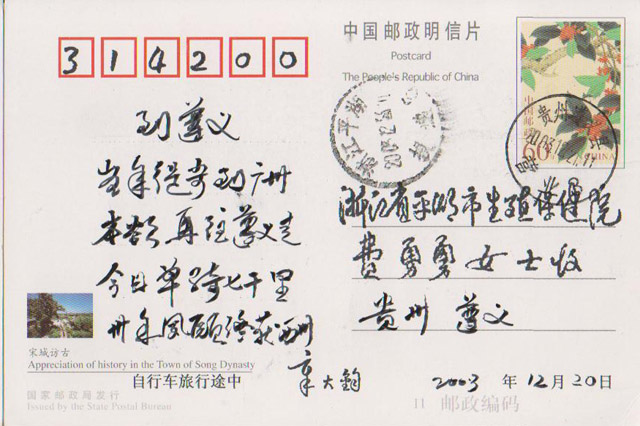 314200
中国邮政明信片
Postcard
The People's Republic of China
中国邮政
60分
CHINA
贵州
浙江平湖
到遵义
当年从奇到广州
本欲再往遵义走
今日单骑七千里
卅年夙愿终获酬
章大钧
浙江省平湖市生殖保健院
费勇勇女士收
贵州 遵义
2003 年 12 月 20 日
宋城访古
Appreciation of history in the Town of Song Dynasty
自行车旅行途中
国家邮政局发行
Issued by the State Postal Bureau
11 邮政编码